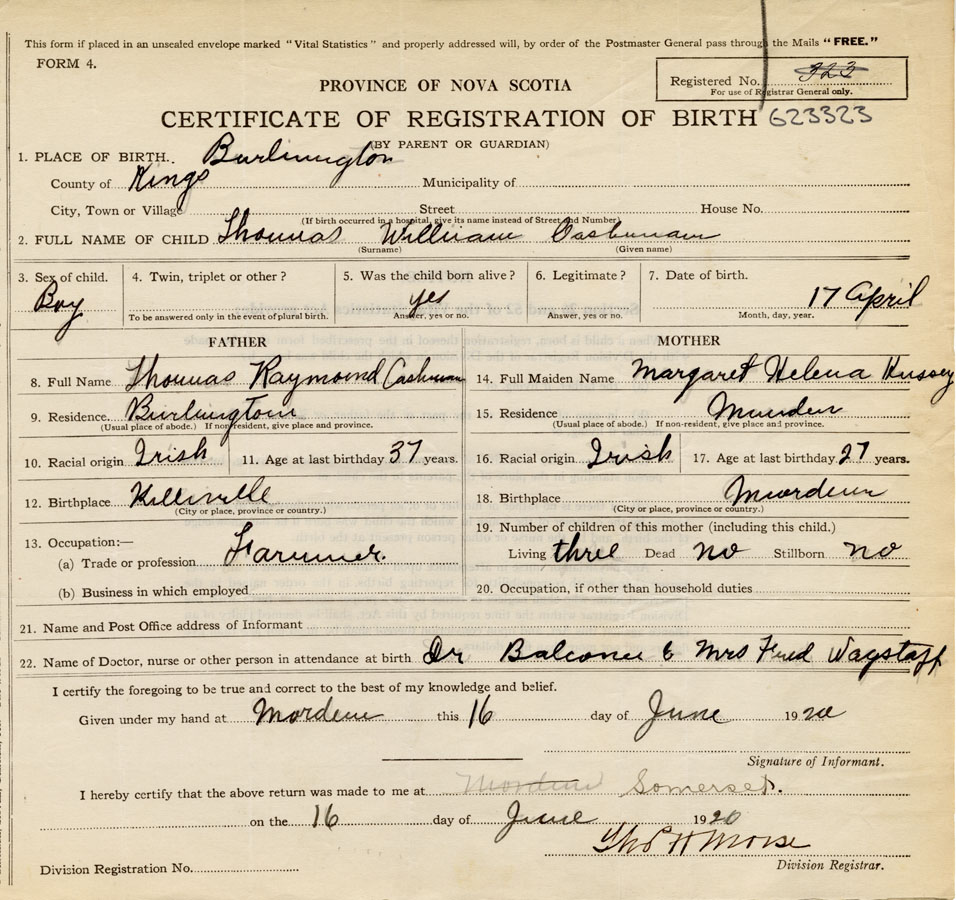 This form if placed in an unsealed envelope marked "Vital Statistics" and properly addressed will, by order of the Postmaster General pass through the Mails "FREE."
FORM 4.
Registered No. 323
For use of Registrar General only.
PROVINCE OF NOVA SCOTIA
CERTIFICATE OF REGISTRATION OF BIRTH 623323
(BY PARENT OR GUARDIAN)
1. PLACE OF BIRTH. Burlington
County of Kings Municipality of
City, Town or Village Street House No.
(If birth occurred in a hospital, give its name instead of Street and Number)
2. FULL NAME OF CHILD Thomas William Cashman
(Surname) (Given name)
3. Sex of child. 4. Twin, triplet or other? 5. Was the child born alive? 6. Legitimate? 7. Date of birth.
Boy yes 17 April
To be answered only in the event of plural birth. Answer, yes or no. Answer, yes or no. Month, day, year.
FATHER MOTHER
8. Full Name Thomas Raymond Cashman 14. Full Maiden Name Margaret Helena Hussey
9. Residence. Burlington 15. Residence Morden
(Usual place of abode.) If non-resident, give place and province. (Usual place of abode.) If non-resident, give place and province.
10. Racial origin Irish 11. Age at last birthday 37 years. 16. Racial origin Irish 17. Age at last birthday 27 years.
12. Birthplace 18. Birthplace Morden
(City or place, province or country.) (City or place, province or country.)
13. Occupation:— 19. Number of children of this mother (including this child.)
(a) Trade or profession Farmer. Living three Dead no Stillborn no
(b) Business in which employed 20. Occupation, if other than household duties
21. Name and Post Office address of Informant
22. Name of Doctor, nurse or other person in attendance at birth Dr Mrs Fred Wagstaff
I certify the foregoing to be true and correct to the best of my knowledge and belief.
Given under my hand at Morden this 16 day of June 1920
Signature of Informant.
I hereby certify that the above return was made to me at Morden Somerset.
on the 16 day of June 1920
Thos H Morse
Division Registration No. Division Registrar.